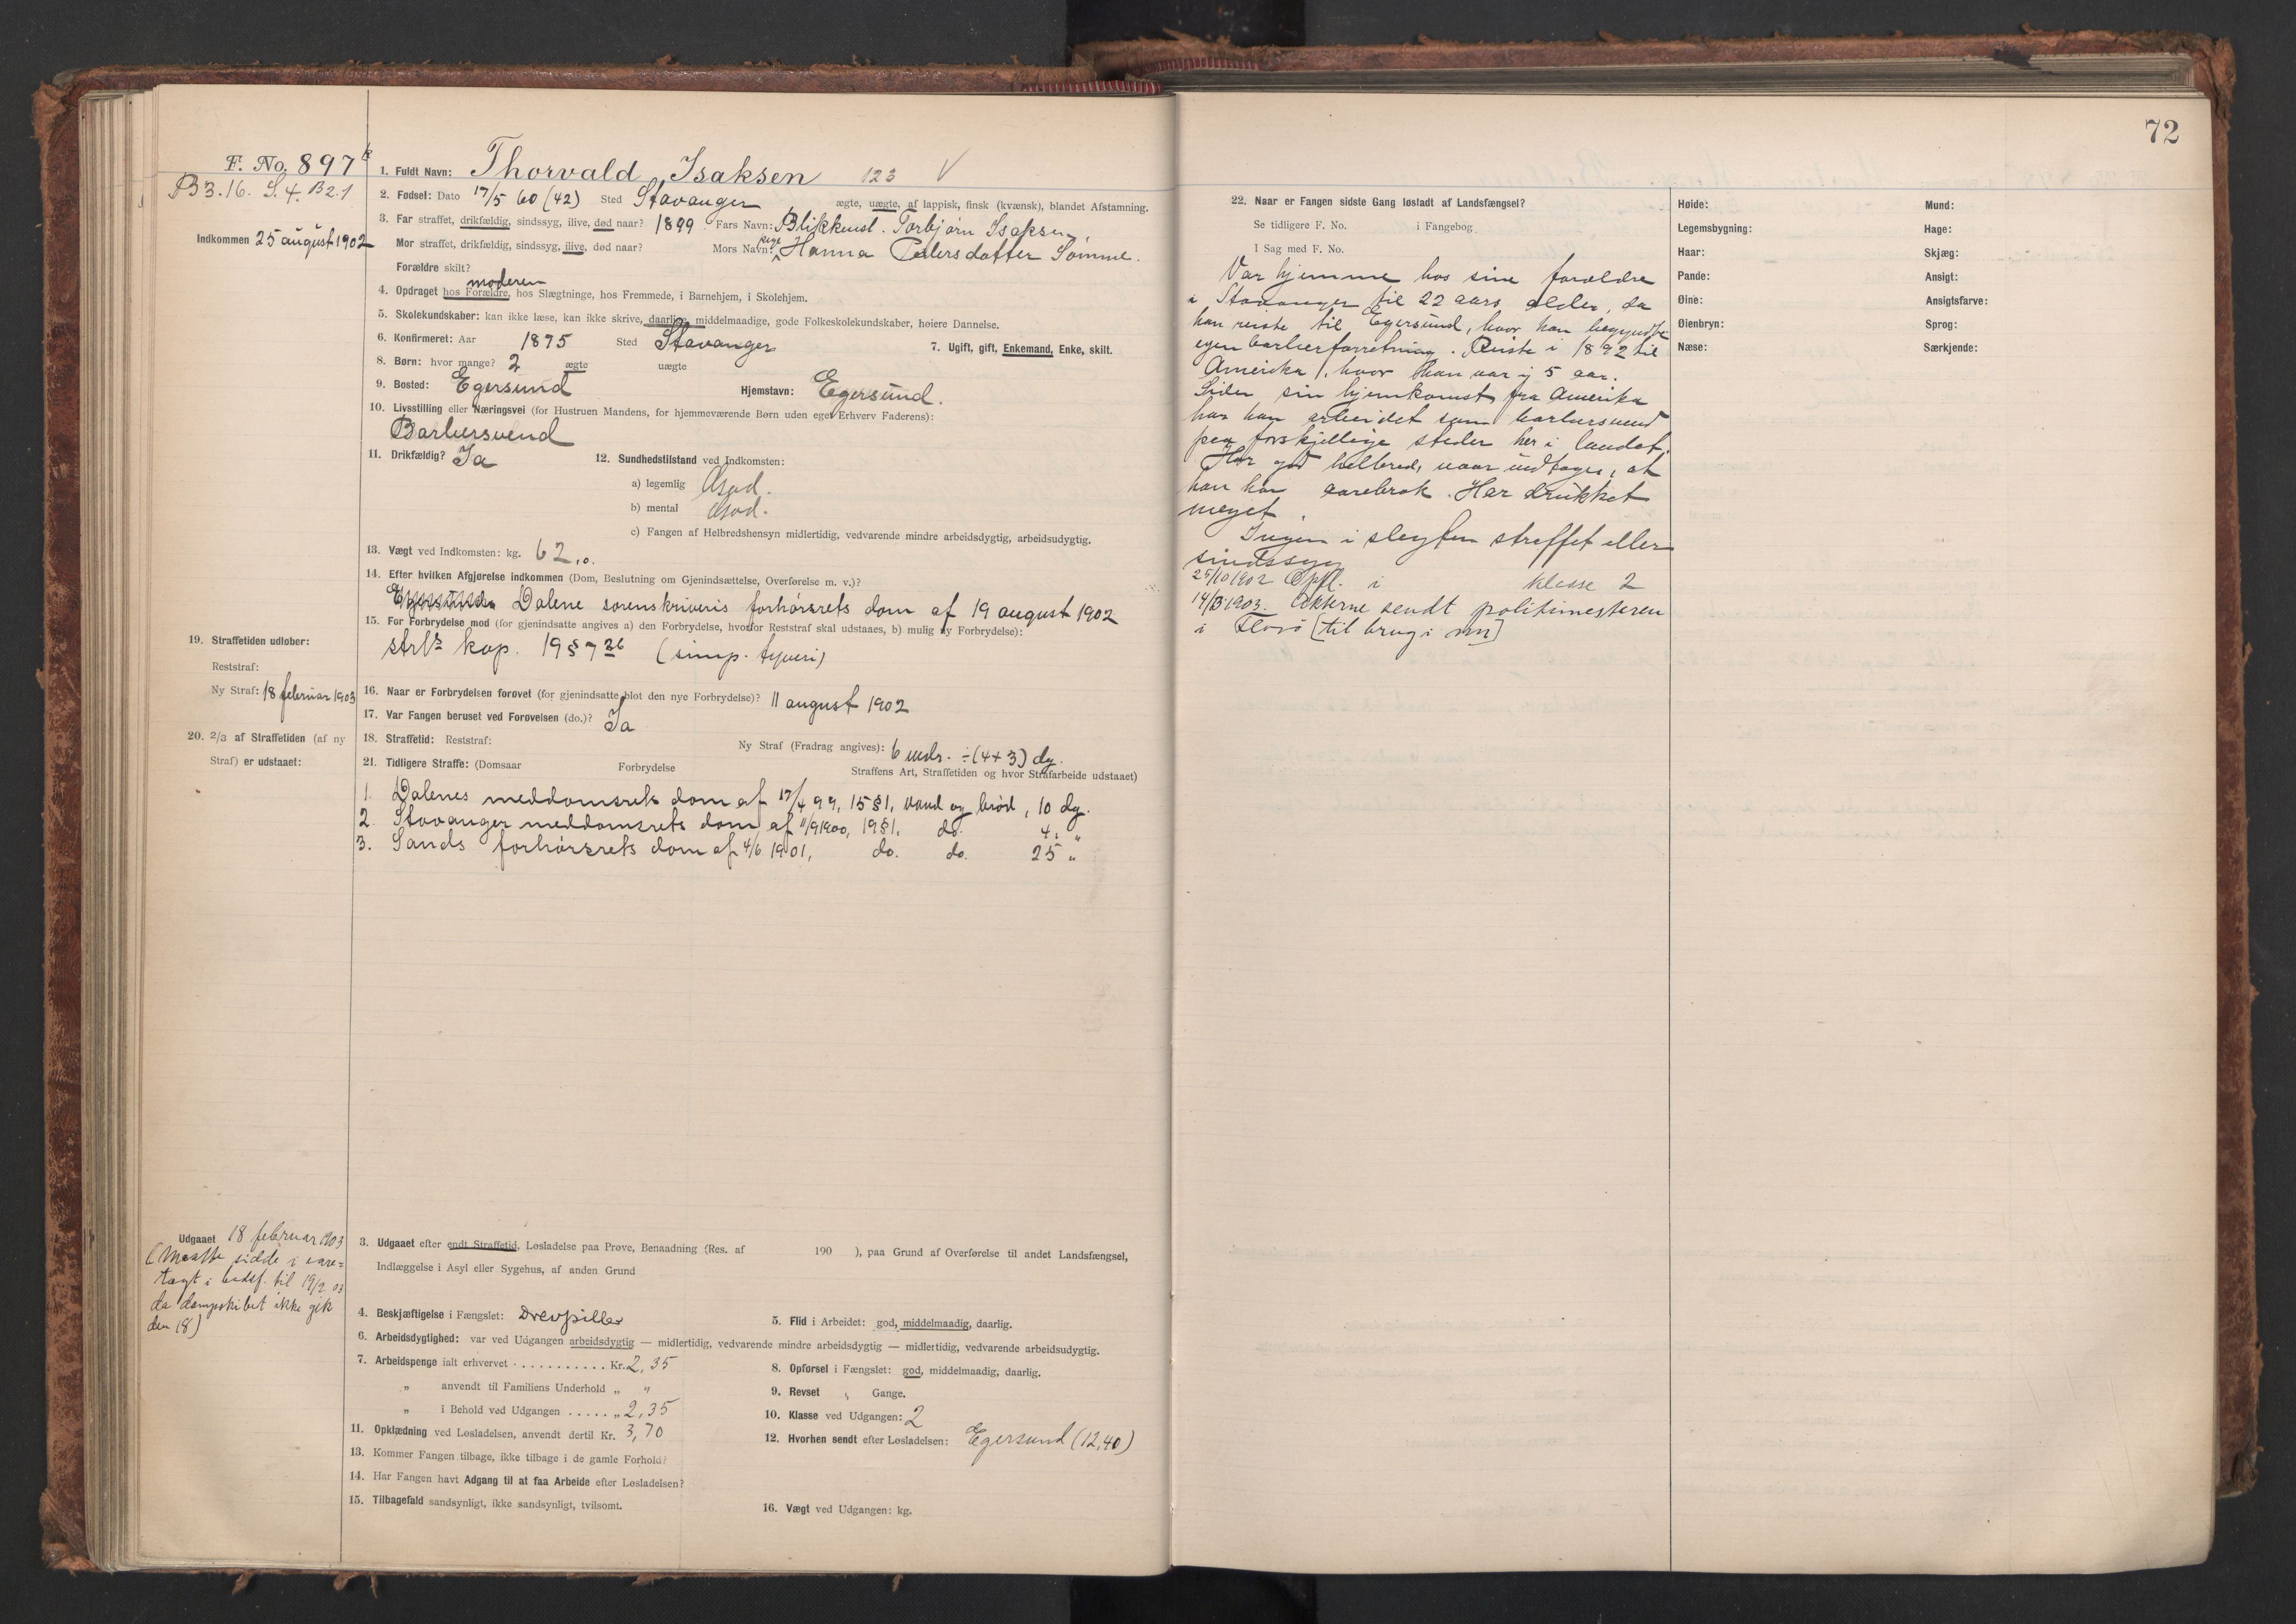 F. No. 897
B3.16. S.4. B2.1
Indkommen 25 august 1902
1. Fuldt Navn: Thorvald Isaksen 123 V
2. Fødsel: Dato 17/5 60 (42) Sted Stavanger ægte, uægte, af lappisk, finsk (kvænsk), blandet Afstamning.
3. Far straffet, drikfældig, sindssyg, ilive, død naar? 1899 Fars Navn: Blikkensl. Torbjørn Isaksen,
Mor straffet, drikfældig, sindssyg, ilive, død naar? Mors Navn: pige Hanna Pedersdatter Sømme.
Forældre skilt?
moderen
4. Opdraget hos Forældre, hos Slægtninge, hos Fremmede, i Barnehjem, i Skolehjem.
5. Skolekundskaber: kan ikke læse, kan ikke skrive, daarlige, middelmaadige, gode Folkeskolekundskaber, høiere Dannelse.
6. Konfirmeret: Aar 1875 Sted Stavanger 7. Ugift, gift, Enkemand, Enke, skilt.
8. Børn: hvor mange? 2 ægte uægte
9. Bosted: Egersund Hjemstavn: Egersund.
10. Livsstilling eller Næringsvei (for Hustruen Mandens, for hjemmeværende Børn uden eget Erhverv Faderens):
Barbersvend
11. Drikfældig? Ja 12. Sundhedstilstand ved Indkomsten:
a) legemlig God.
b) mental God.
c) Fangen af Helbredshensyn midlertidig, vedvarende mindre arbeidsdygtig, arbeidsudygtig.
13. Vægt ved Indkomsten: kg. 62,0.
14. Efter hvilken Afgjørelse indkommen (Dom, Beslutning om Gjenindsættelse, Overførelse m. v.)?
Dalene sorenskriveris forhørsrets dom af 19 august 1902
15. For Forbrydelse mod (for gjenindsatte angives a) den Forbrydelse, hvorfor Reststraf skal udstaaes, b) mulig ny Forbrydelse):
kap. 19 § 7 (simp. tyveri)
19. Straffetiden udløber:
Reststraf:
Ny Straf: 18 februar 1903
16. Naar er Forbrydelsen forøvet (for gjenindsatte blot den nye Forbrydelse)? 11 august 1902
17. Var Fangen beruset ved Forøvelsen (do.)? Ja
20. 2/3 af Straffetiden (af ny
Straf) er udstaaet:
18. Straffetid: Reststraf: Ny Straf (Fradrag angives): 6 mdr. ÷ (4+3) dg.
21. Tidligere Straffe: (Domsaar Forbrydelse Straffens Art, Straffetiden og hvor Strafarbeide udstaaet)
1. Dalenes meddomsrets dom af 17/4 99, 15 § 1, vand og brød, 10 dg.
2. Stavanger meddomsrets dom af 11/9 1900, 19 § 1, do. 4. "
3. Sands forhørsrets dom af 4/6 1901, do. do. 25 "
Udgaaet 18 februar 1903
(Maatte sidde i vare=
tægt i til 19/2 03
da dampskibet ikke gik
den 18)
3. Udgaaet efter endt Straffetid, Løsladelse paa Prøve, Benaadning (Res. af 190 ), paa Grund af Overførelse til andet Landsfængsel,
Indlæggelse i Asyl eller Sygehus, af anden Grund
4. Beskjæftigelse i Fængslet: Drevpiller 5. Flid i Arbeidet: god, middelmaadig, daarlig.
6. Arbeidsdygtighed: var ved Udgangen arbeidsdygtig — midlertidig, vedvarende mindre arbeidsdygtig — midlertidig, vedvarende arbeidsudygtig.
7. Arbeidspenge ialt erhvervet . . . . . . . . . . . Kr. 2,35 8. Opførsel i Fængslet: god, middelmaadig, daarlig.
„ anvendt til Familiens Underhold „ " 9. Revset " Gange.
„ i Behold ved Udgangen . . . . . „ 2,35 10. Klasse ved Udgangen: 2
11. Opklædning ved Løsladelsen, anvendt dertil Kr. 3,70 12. Hvorhen sendt efter Løsladelsen: Egersund (12,40)
13. Kommer Fangen tilbage, ikke tilbage i de gamle Forhold?
14. Har Fangen havt Adgang til at faa Arbeide efter Løsladelsen?
15. Tilbagefald sandsynligt, ikke sandsynligt, tvilsomt. 16. Vægt ved Udgangen: kg.
72
22. Naar er Fangen sidste Gang løsladt af Landsfængsel?
Se tidligere F. No. i Fangebog
I Sag med F. No.
Var hjemme hos sine forældre
i Stavanger til 22 aars alder, da
han reiste til Egersund, hvor han begyndte
egen barberforretning. Reiste i 1892 til
Amerika, hvor han var i 5 aar.
Siden sin hjemkomst fra Amerika
har han arbeidet som barbersvend
paa forskjellige steder her i landet.
Har god helbred, naar undtages, at
han har aarebrok. Har drukket
meget.
Ingen i slegten straffet eller
sindssyg
25/10 1902 Opfl. i klasse 2
14/3 1903. Akterne sendt politimesteren
i Florø [til brug i nn]
Høide: Mund:
Legemsbygning: Hage:
Haar: Skjæg:
Pande: Ansigt:
Øine: Ansigtsfarve:
Øienbryn: Sprog:
Næse: Særkjende: